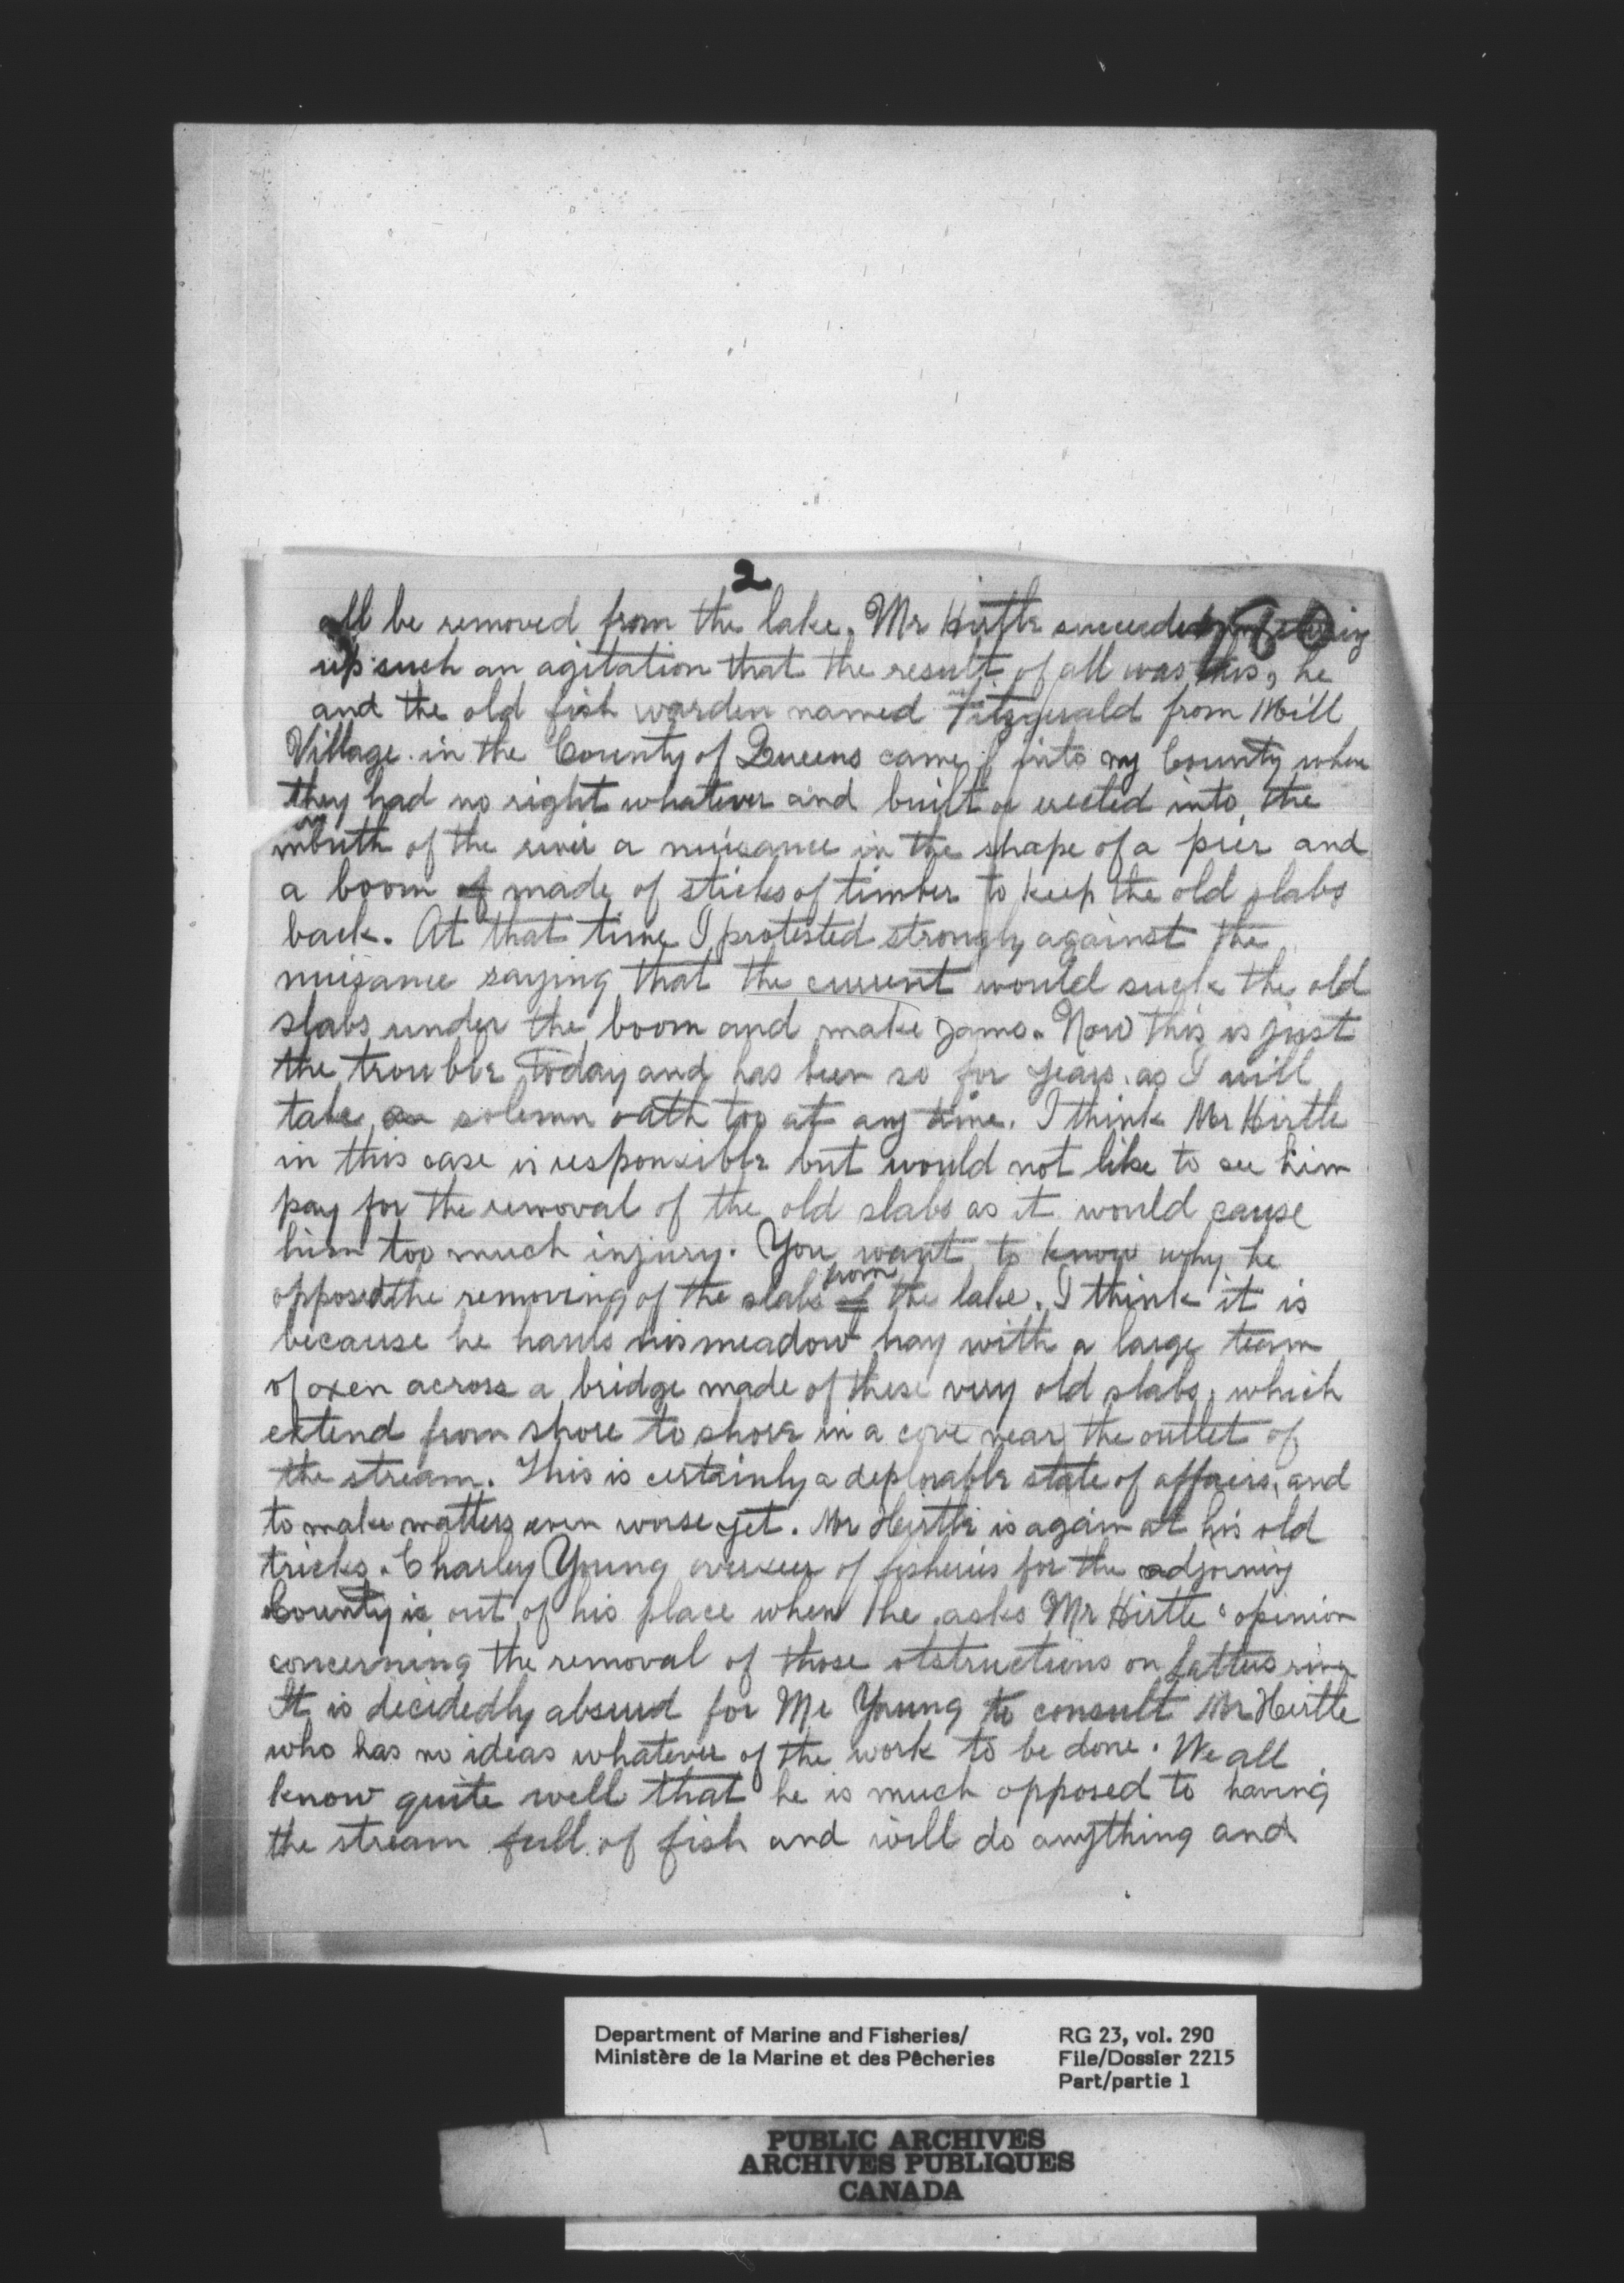 2
all be removed from the lake. Mr Hirtle succeeded
up such an agitation that the result of all was this, he
and the old fish warden named Fitzgerald from Mill
Village in the County of Queens came into my County where
they had no right whatever and built or erected into the
mouth of the river a nuisance in the shape of a pier and
a boom of made of sticks of timber to keep the old slabs
back. At that time I protested strongly against the
nuisance saying that the current would suck the old
slabs under the boom and make jams. Now this is just
the trouble Today and has been so for years. as I will
take solemn oath too at any time. I think Mr Hirtle
in this case is responsible but would not like to see him
pay for the removal of the old slabs as it would cause
him too much injury. You want to know why he
opposed the removing of the slabs of from the lake. I think it is
because he hauls his meadow hay with a large team
of oxen across a bridge made of these very old slabs, which
extend from shore to shore in a cove near the outlet of
the stream. This is certainly a deplorable state of affairs, and
to make matters even worse yet. Mr Hirtle is again at his old
tricks. Charley Young overseer of fisheries for the adjoining
County is out of his place when he asks Mr Hirtle's opinion
concerning the removal of those otstructions on river
It is decidedly absurd for Mr Young to consult Mr Hirtle
who has no ideas whatever of the work to be done. We all
know quite well that he is much opposed to having
the stream full of fish and will do anything and
Department of Marine and Fisheries/
Ministère de la Marine et des Pêcheries
RG 23, vol. 290
File/Dossier 2215
Part/partie 1
PUBLIC ARCHIVES
ARCHIVES PUBLIQUES
CANADA